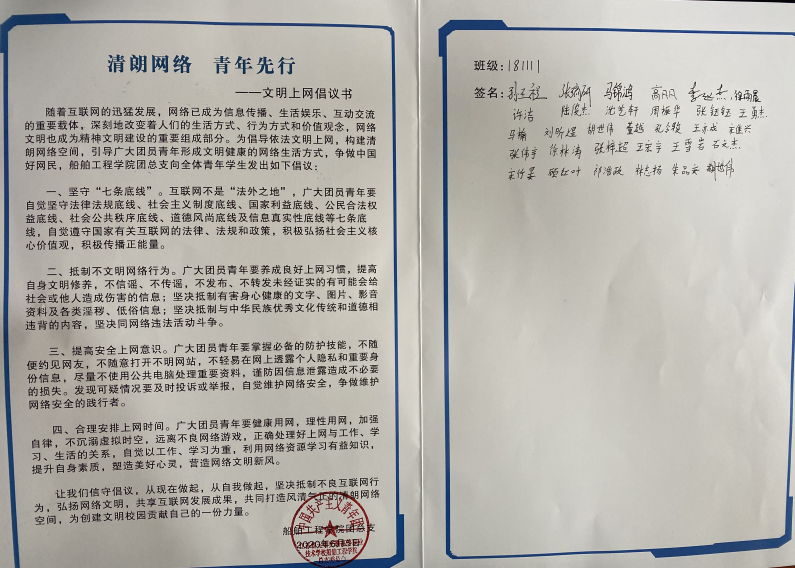 清朗网络 青年先行
——文明上网倡议书
随着互联网的迅猛发展，网络已成为信息传播、生活娱乐、互动交流
的重要载体，深刻地改变着人们的生活方式、行为方式和价值观念，网络
文明也成为精神文明建设的重要组成部分。为倡导依法文明上网，构建清
朗网络空间，引导广大团员青年形成文明健康的网络生活方式，争做中国
好网民，船舶工程学院团总支向全体青年学生发出如下倡议：
一、坚守“七条底线”。互联网不是“法外之地”，广大团员青年要
自觉坚守法律法规底线、社会主义制度底线、国家利益底线、公民合法权
益底线、社会公共秩序底线、道德风尚底线及信息真实性底线等七条底
线，自觉遵守国家有关互联网的法律、法规和政策，积极弘扬社会主义核
心价值观，积极传播正能量。
二、抵制不文明网络行为。广大团员青年要养成良好上网习惯，提高
自身文明修养，不信谣、不传谣，不发布、不转发未经证实的有可能会给
社会或他人造成伤害的信息；坚决抵制有害身心健康的文字、图片、影音
资料及各类淫秽、低俗信息；坚决抵制与中华民族优秀文化传统和道德相
违背的内容，坚决同网络违法活动斗争。
三、提高安全上网意识。广大团员青年要掌握必备的防护技能，不随
便约见网友，不随意打开不明网站，不轻易在网上透露个人隐私和重要身
份信息，尽量不使用公共电脑处理重要资料，谨防因信息泄露造成不必要
的损失。发现可疑情况要及时投诉或举报，自觉维护网络安全，争做维护
网络安全的践行者。
四、合理安排上网时间。广大团员青年要健康用网，理性用网，加强
自律，不沉溺虚拟时空，远离不良网络游戏，正确处理好上网与工作、学
习、生活的关系，自觉以工作、学习为重，利用网络资源学习有益知识，
提升自身素质，塑造美好心灵，营造网络文明新风。
让我们信守倡议，从现在做起，从自我做起，坚决抵制不良互联网行
为，弘扬网络文明，共享互联网发展成果，共同打造风清气正的清朗网络
空间，为创建文明校园贡献自己的一份力量。
船舶工程学院团总支
2020年6月5日
中国共产主义青年团
技术学校船舶工程学院
班级：181111
签名：
许洁 陆俊杰 沈艺轩 周振华 张钰钰 王勇杰
马楠 刘昕煜 胡世伟 董越
张伟宇 徐林涛 张梓超 王宗宇 王雪岩 石文杰
林志扬 朱品安 胡世伟